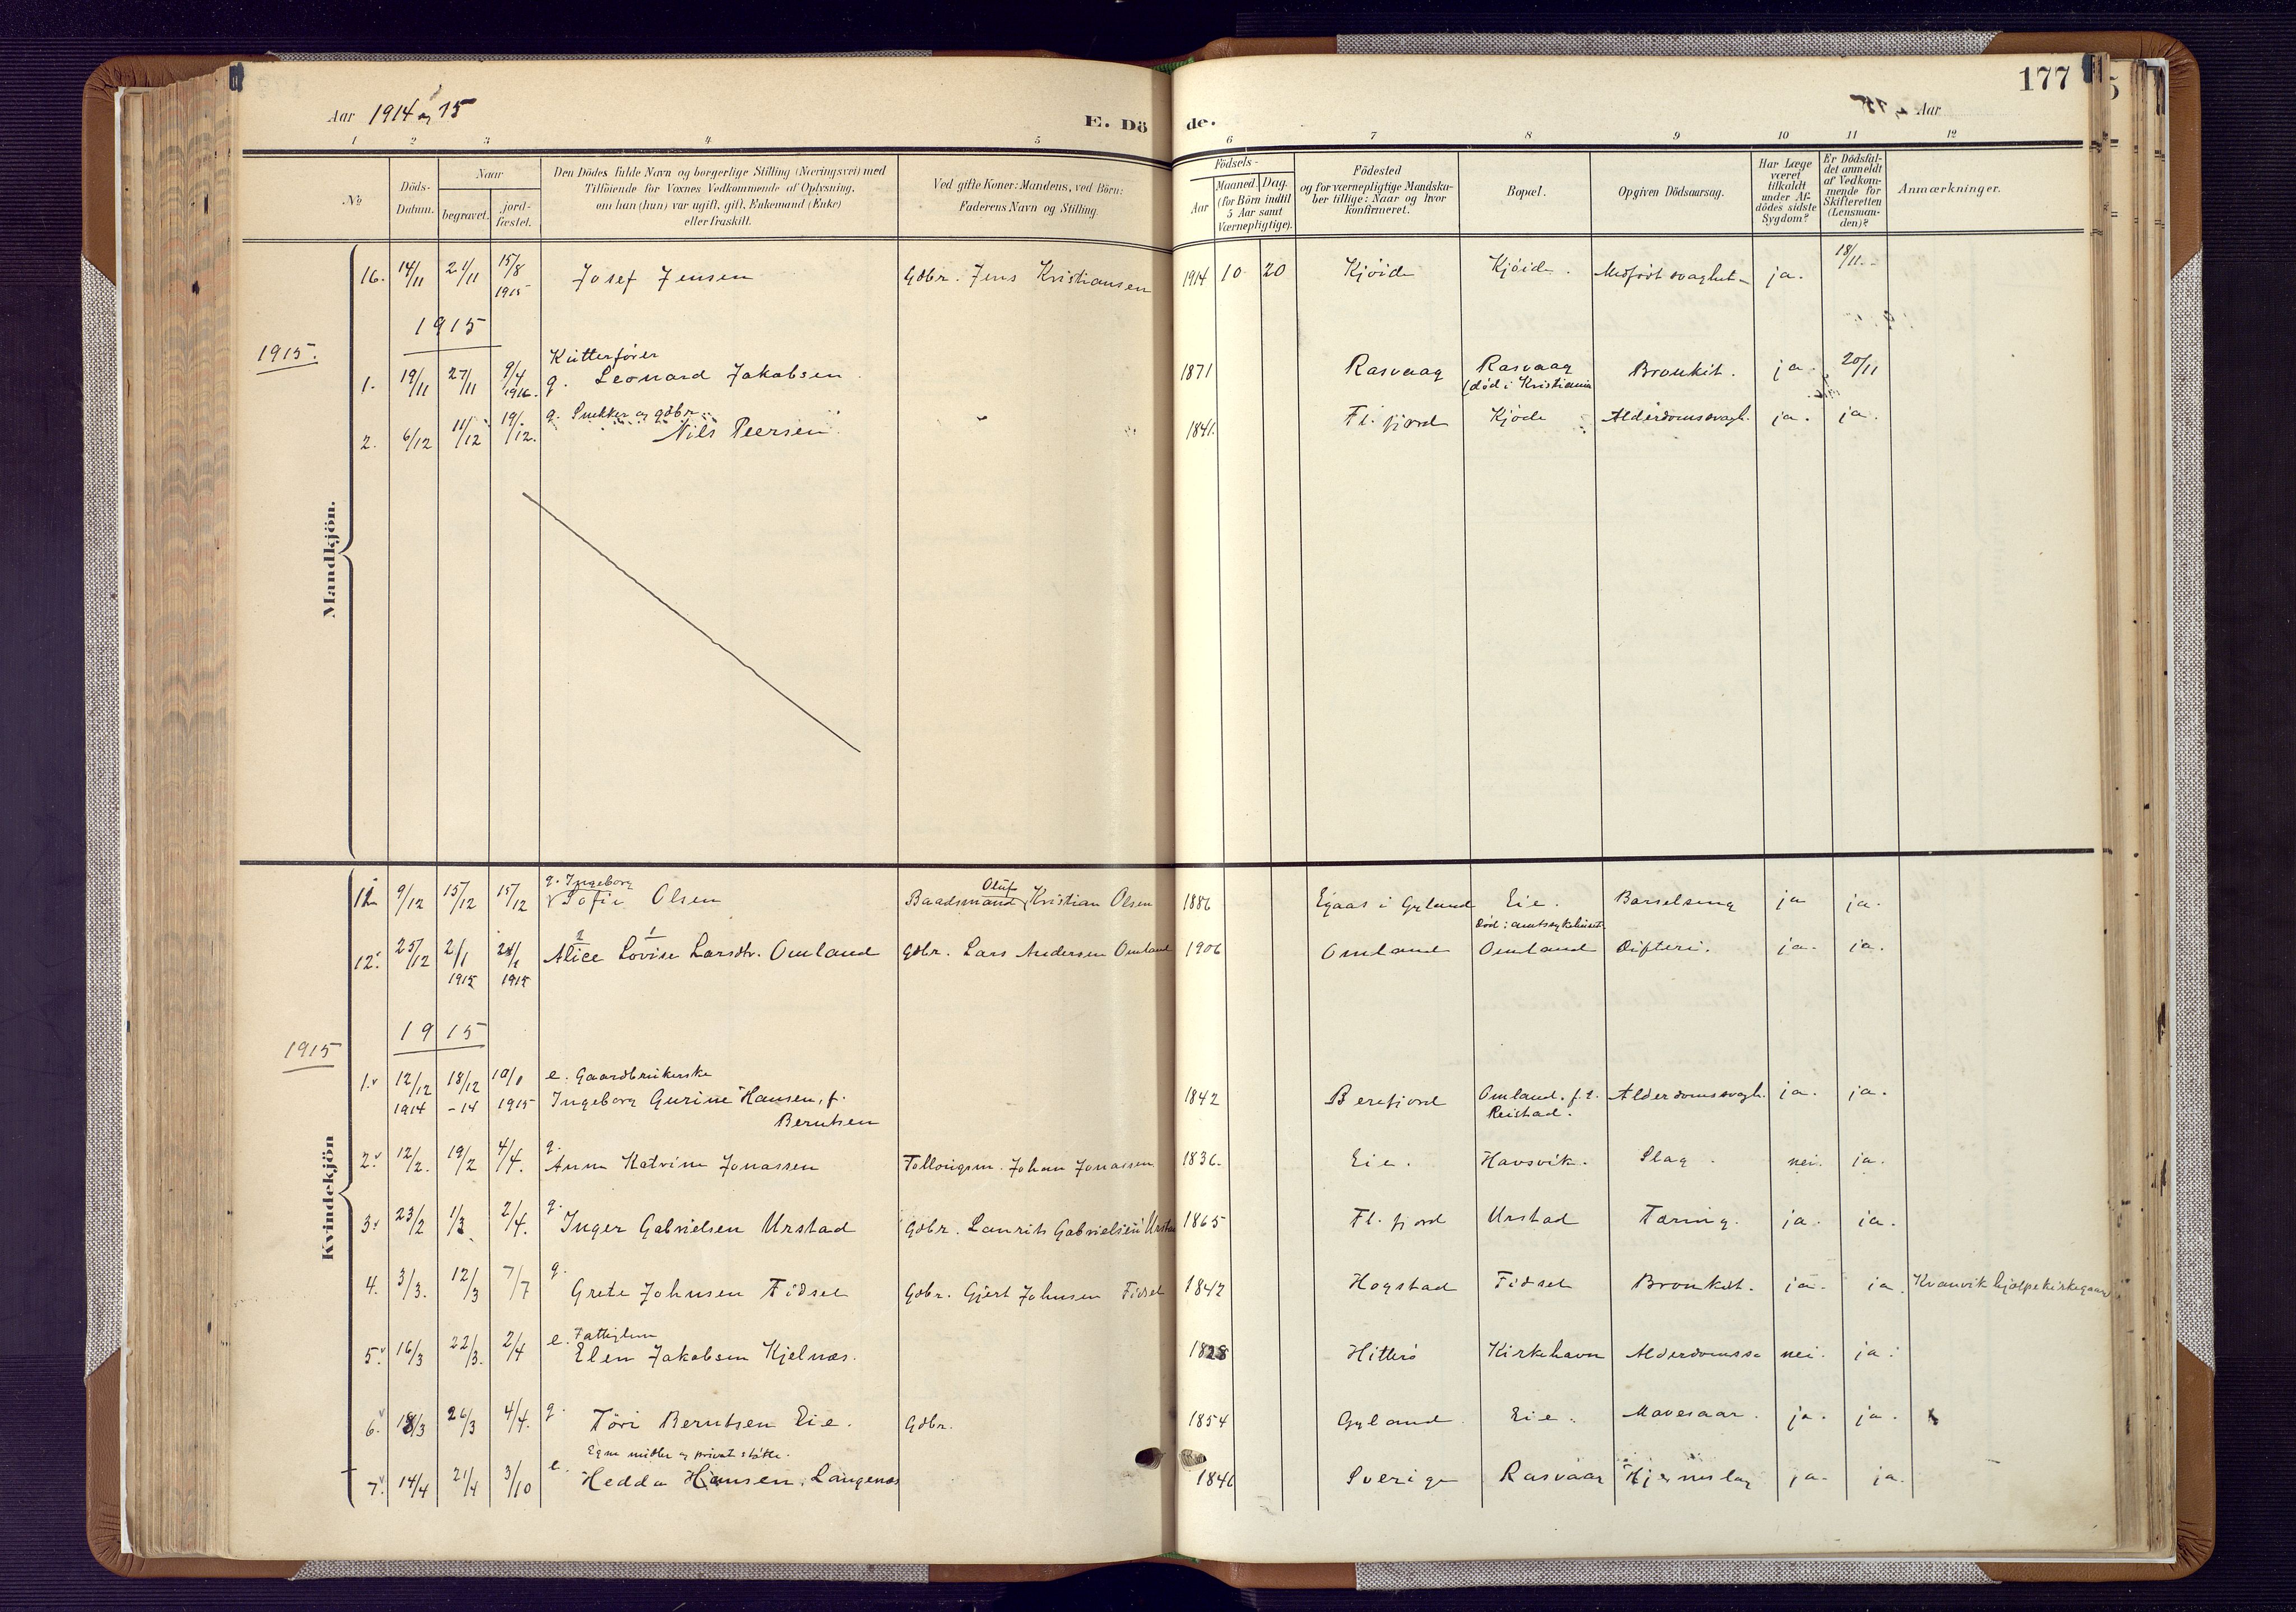 Aar 1914 og 15
E. Dö
de.
177
Aar
1 2 3 4 5 6 7 8 9 10 11 12
No
Döds-
Datum.
Naar
begravet.
jord-
fæstet.
Den Dödes fulde Navn og borgerlige Stilling (Næringsvei) med
Tilföiende for Voxnes Vedkommende af Oplysning,
om han (hun) var ugift, gift, Enkemand (Enke)
eller fraskilt.
Ved gifte Koner: Mandens, ved Börn:
Faderens Navn og Stilling.
Födsels-
Aar
Maaned. Dag.
(for Börn indtil
5 Aar samt
Værnepligtige).
Födested
og for værnepligtige Mandska-
ber tillige: Naar og hvor
konfirmeret.
Bopæl.
Opgiven Dödsaarsag.
Har Læge
været
tilkaldt
under Af-
dödes sidste
Sygdom?
Er Dödsfal-
det anmeldt
af Vedkom-
mende for
Skifteretten
(Lensman-
den)?
Anmærkninger.
Mandkjön.
16. 14/11 21/11 15/8 1915 Josef Jensen Gdbr. Jens Kristiansen 1914 10 20 Kjöide Kjöide. Medfödt svaghet ja. 18/11
1915
1915.
Kutterförer
1. 19/11 27/11 9/4 1916. g. Leonard Jakobsen 1871 Rasvaag Rasvaag (död i Kristiania Bronkit. ja 20/11
g. Snekker og gdbr.
2. 6/12 11/12 19/12. Nils Peersen 1841. Fl. fjord Kjöde Alderdomssvagh. ja. ja.
Kvindekjön
g. Ingeborg
11 9/12 15/12 15/12 Sofie Olsen Baadsmand Oluf Kristian Olsen 1886 Egaas i Gyland Eie. Död i amtssykehuset Barselseng ja ja.
2 1
12. 25/12 2/1 1915 24/1 1915 Alice Lovise Larsdtr. Omland Gdbr. Lars Andersen Omland 1906 Omland Omland Difteri. ja. ja.
1915
1915
e. Gaardbrukerske
1. 12/12 1914 18/12 -14 10/1 1915 Ingeborg Gurine Hansen, f. Berntsen 1842 Berefjord Omland. f. t. Reistad. Alderdomssvagh. ja. ja.
2. 12/2. 19/2 4/4. g. Anne Katrine Jonassen Follougsm. Johan Jonassen 1836. Eie. Havsvik. Slag. nei. ja.
3. 23/2 1/3 2/4. g. Inger Gabrielsen Urstad Gdbr. Laurits Gabrielsen Urstad 1865 Fl. fjord Urstad Tæring. ja. ja.
4. 3/3. 12/3 7/7 g. Grete Johnsen Fidsel Gdbr. Gjert Johnsen Fidsel 1842 Hogstad Fidsel Bronkit. ja. ja. Kvanvik hjelpekirkegaard
5. 16/3 22/3. 2/4 e. Fattiglem Elen Jakobsen Kjelnæs. 1828 Hitterö Kirkehavn Alderdomssv nei. ja.
6. 18/3 26/3 4/4. g. Töri Berntsen Eie. Gdbr. 1854 Gyland Eie. Mavesaar. ja. ja.
Egne midler og privat stötte.
7. 14/4 21/4 3/10 e. Hedda Hansen, Langenæs 1846 Sverige Rasvaag Hjerneslag ja. ja.